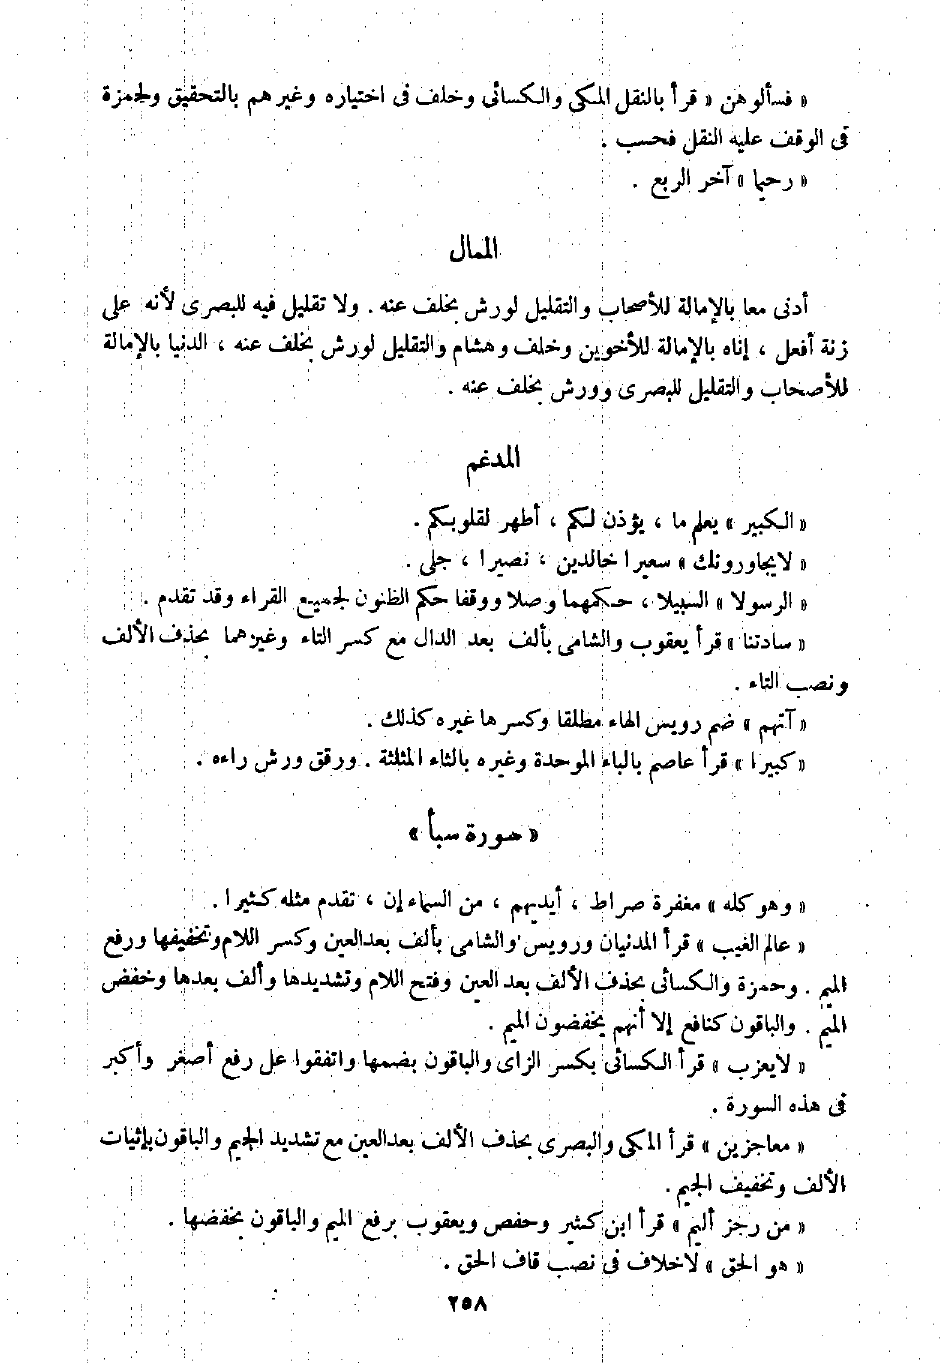 « فسألوهن » قرأ بالنقل المكى والكسائى وخلف فى اختياره وغيرهم بالتحقيق ولحمزة
فى الوقف عليه النقل فحسب .
« رحيما » آخر الربع .
الممال
أدنى معا بالإمالة للأصحاب والتقليل لورش بخلف عنه . ولا تقليل فيه للبصرى لأنه على
زنة أفعل ، إناه بالإمالة للأخوين وخلف وهشام والتقليل لورش بخلف عنه ، الدنيا بالإمالة
للأصحاب والتقليل للبصرى وورش بخلف عنه .
المدغم
« الكبير » يعلم ما ، يؤذن لكم ، أطهر لقلوبكم .
« لايجاورونك » سعيرا خالدين ، نصيرا ، جلى .
« الرسولا » السبيلا ، حكمهما وصلا ووقفا حكم الظنون لجميع القراء وقد تقدم .
« سادتنا » قرأ يعقوب والشامى بألف بعد الدال مع كسر التاء وغيرهما بحذف الألف
ونصب التاء .
« آتهم » ضم رويس الهاء مطلقا وكسرها غيره كذلك .
« كبيرا » قرأ عاصم بالباء الموحدة وغيره بالثاء المثلثة . ورقق ورش راءه .
« سورة سبأ »
« وهو كله » مغفرة صراط ، أيديهم ، من السماء إن ، تقدم مثله كثيرا .
« عالم الغيب » قرأ المدنيان ورويس والشامى بألف بعدالعين وكسر اللام وتخفيفها ورفع
الميم . وحمزة والكسائى بحذف الألف بعد العين وفتح اللام وتشديدها وألف بعدها وخفض
الميم . والباقون كنافع إلا أنهم يخفضون الميم .
« لايعزب » قرأ الكسائى بكسر الزاى والباقون بضمها واتفقوا على رفع أصغر وأكبر
فى هذه السورة .
« معاجزين » قرأ المكى والبصرى بحذف الألف بعدالعين مع تشديد الجيم والباقون بإثبات
الألف وتخفيف الجيم .
« من رجز أليم » قرأ ابن كثير وحفص ويعقوب برفع الميم والباقون بخفضها .
« هو الحق » لاخلاف فى نصب قاف الحق .
٢٥٨